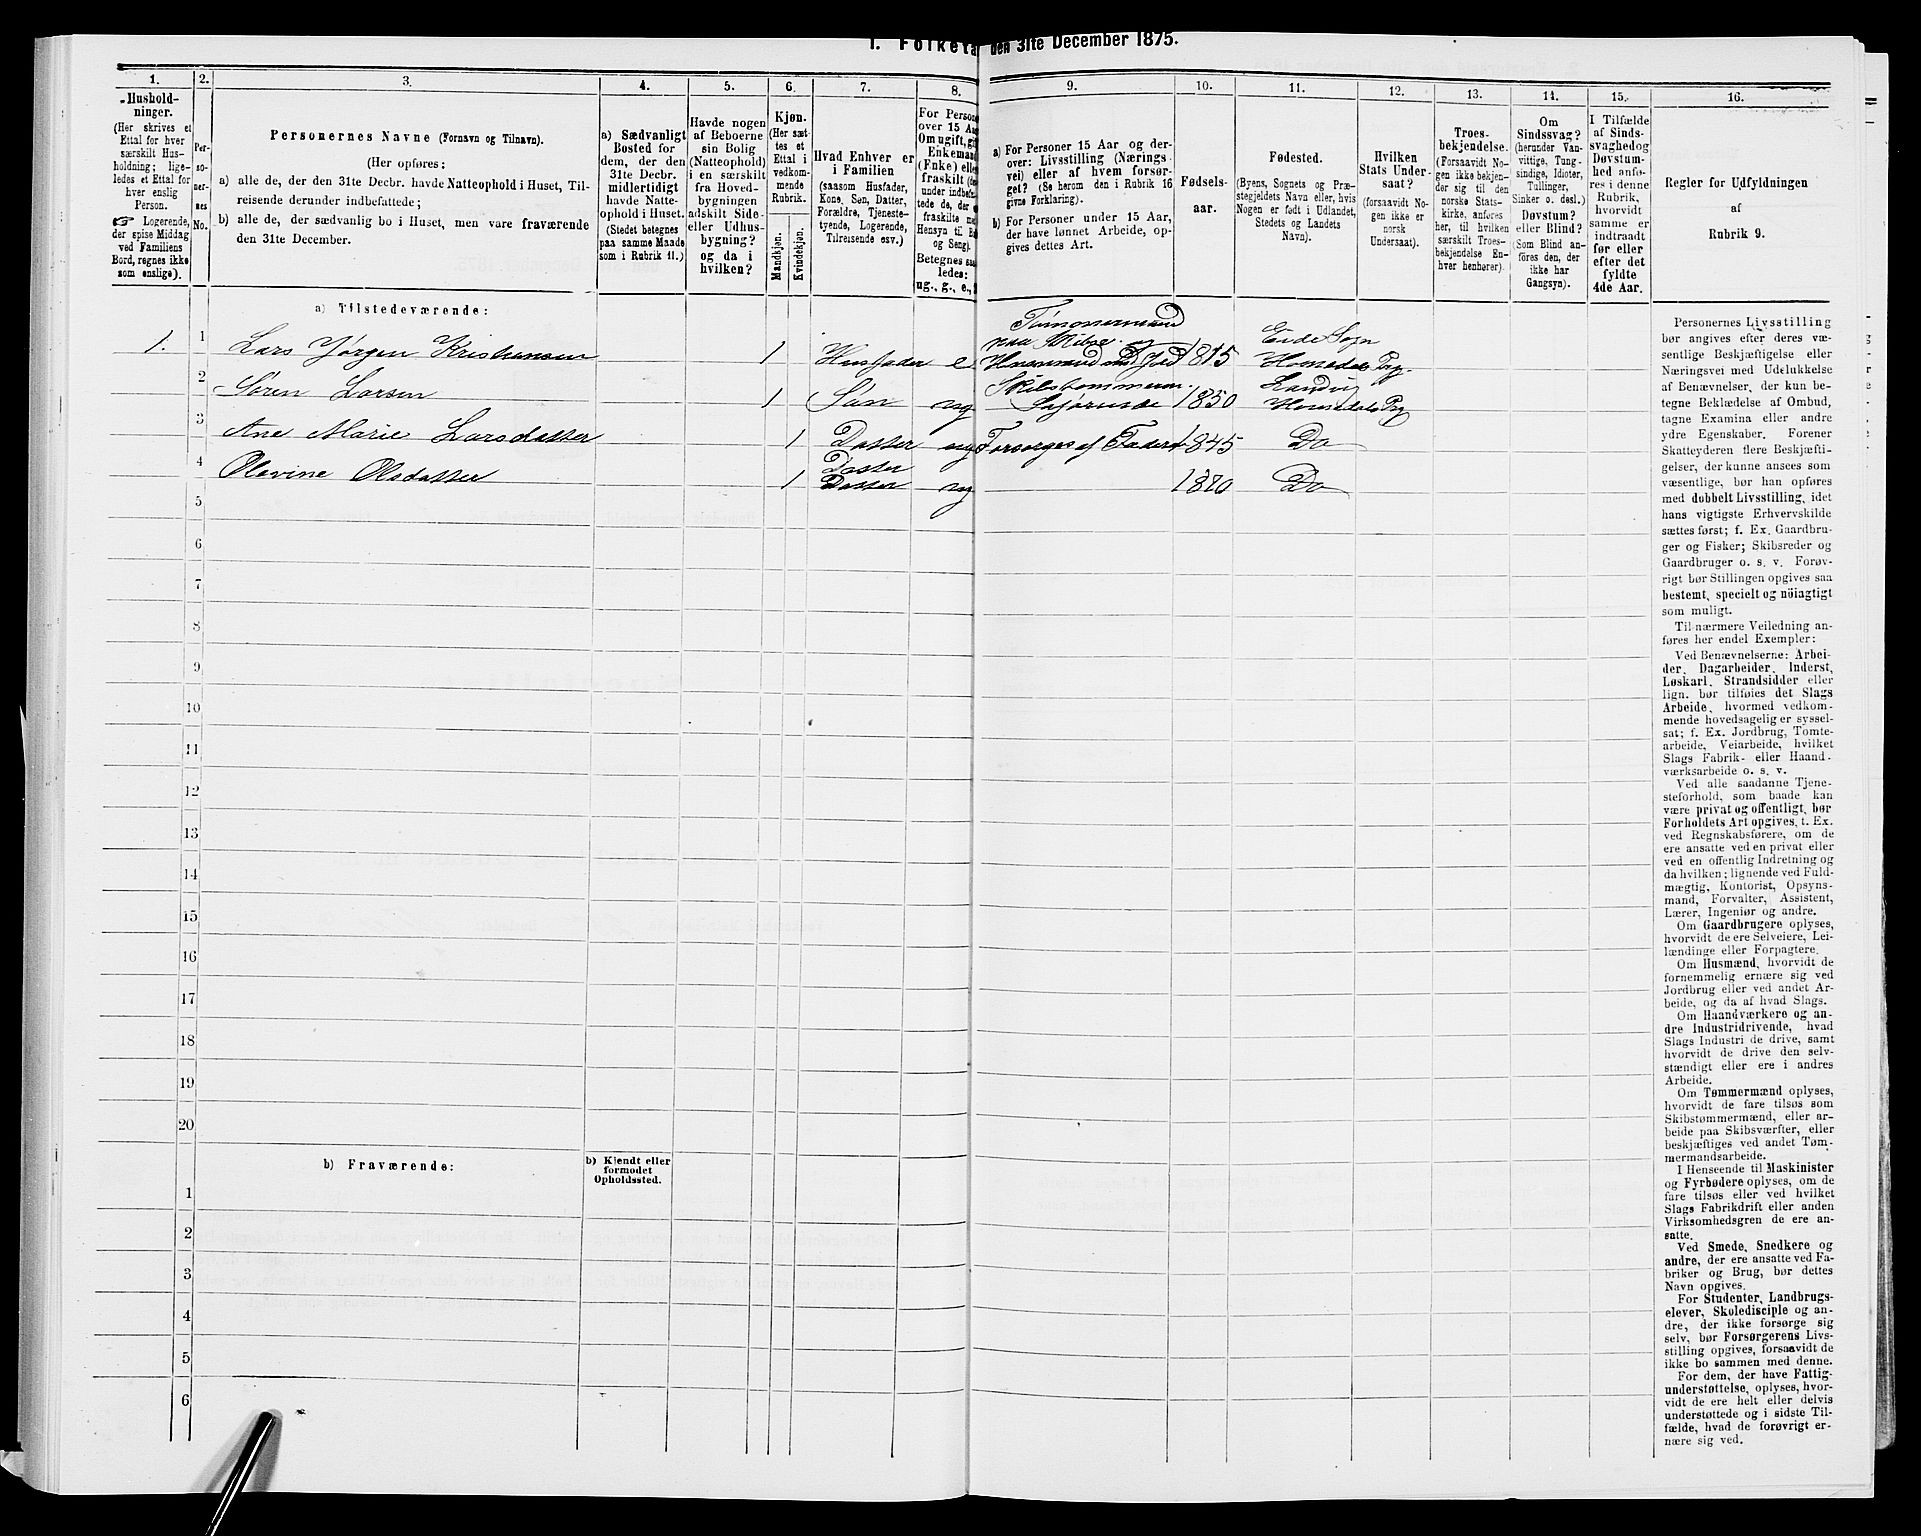 1. Folketæ den 31te December 1875.
1. 2. 3. 4. 5. 6. 7. 8. 9. 10. 11. 12. 13. 14. 15. 16.
Hushold-
ninger.
(Her skrives et
Ettal for hver
særskilt Hus-
holdning; lige-
ledes et Ettal for
hver enslig
Person.
☞ Logerende,
der spise Middag
ved Familiens
Bord, regnes ikke
som enslige).
Per-
so-
ner-
nes
No.
Personernes Navne (Fornavn og Tilnavn).
(Her opføres:
a) alle de, der den 31te Decbr. havde Natteophold i Huset, Til-
reisende derunder indbefattede;
b) alle de, der sædvanlig bo i Huset, men vare fraværende
den 31te December.
a) Sædvanligt
Bosted for
dem, der den
31te Decbr.
midlertidigt
havde Natte-
ophold i Huset.
(Stedet betegnes
paa samme Maade
som i Rubrik 11.)
Havde nogen
af Beboerne
sin Bolig
(Natteophold)
i en særskilt
fra Hoved-
bygningen
adskilt Side-
eller Udhus-
bygning?
og da i
hvilken?
Kjøn.
(Her sæt-
tes et
Ettal i
vedkom-
mende
Rubrik.
Mandkjøn.
Kvindekjøn.
Hvad Enhver er
i Familien
(saasom Husfader,
Kone, Søn, Datter,
Forældre, Tjeneste-
tyende, Logerende,
Tilreisende osv.)
For Persone
over 15 Aa
Om ugift, gif
Enkemand
(Enke) elle
fraskilt
under indbefat
tede de, der e
fraskilte
Hensyn til B
og Seng).
Betegnes saa
ledes:
ug., g., e.,
a) For Personer 15 Aar og der-
over: Livsstilling (Nærings-
vei) eller af hvem forsør-
get? (Se herom den i Rubrik 16
givne Forklaring).
b) For Personer under 15 Aar,
der have lønnet Arbeide, op-
gives dettes Art.
Fødsels-
aar.
Fødested.
(Byens, Sognets og Præ-
stegjeldets Navn eller, hvis
Nogen er født i Udlandet,
Stedets og Landets
Navn).
Hvilken
Stats Under-
saat?
(forsaavidt No-
gen ikke er
norsk
Undersaat).
Troes-
bekjendelse.
(Forsaavidt No-
gen ikke bekjen-
der sig til den
norske Stats-
kirke, anføres
her, til hvilken
særskilt Troes-
bekjendelse En-
hver henhører).
Om
Sindssvag?
(herunder Van-
vittige, Tung-
sindige, Idioter,
Tullinger,
Sinker o. desl.)
Døvstum?
eller Blind?
(Som Blind an-
føres den, der
ikke har
Gangsyn).
I Tilfælde
af Sinds-
svaghed og
Døvstum-
hed anfø-
res i denne
Rubrik,
hvorvidt
samme er
indtraadt
før eller
efter det
fyldte
4de Aar.
Regler for Udfyldningen
af
Rubrik 9.
a) Tilstedeværende:
1. 1 Lars Jørgen Kristensen 1 Husfader e Tømmermand paa Skibe og Husmand med Jord 1815 Eide Sogn Homedals Prg.
2 Søren Larsen 1 Søn ug Skibstømmerm. 1850 Landvig Homedals Prg
3 Ane Marie Larsdatter 1 Datter ug Forsørges af Faderen 1845 Do
4 Olevine Olsdatter 1 Datter Datter ug 1870 Do
5
6
7
8
9
10
11
12
13
14
15
16
17
18
19
20
b) Fraværende:
b) Kjendt eller
formodet
Opholdssted.
1
2
3
4
5
6
Personernes Livsstilling
bør angives efter deres væ-
sentlige Beskjæftigelse eller
Næringsvei med Udelukkelse
af Benævnelser, der kun be-
tegne Beklædelse af Ombud,
tagne Examina eller andre
ydre Egenskaber. Forener
Skatteyderen flere Beskjæfti-
gelser, der kunne ansees som
væsentlige, bør han opføres
med dobbelt Livsstilling, idet
hans vigtigste Erhvervskilde
sættes først; f. Ex. Gaardbru-
ger og Fisker; Skibsreder og
Gaardbruger o. s. v. Forøv-
rigt bør Stillingen opgives saa
bestemt, specielt og nöiagtigt
som muligt.
Til nærmere Veiledning an-
føres her endel Exempler:
Ved Benævnelserne: Arbei-
der, Dagarbeider, Inderst,
Løskarl, Strandsidder eller
lign. bør tilføies det Slags
Arbeide, hvormed vedkom-
mende hovedsagelig er syssel-
sat; f. Ex. Jordbrug, Tomte-
arbeide, Veiarbeide, hvilket
Slags Fabrik- eller Haand-
værksarbeide o. s. v.
Ved alle saadanne Tjene-
steforhold, som baade kan
være privat og offentligt, bør
Forholdets Art opgives, t. Ex.
ved Regnskabsførere, om de
ere ansatte ved en privat eller
ved en offentlig Indretning og
da hvilken; lignende ved Fuld-
mægtig, Kontorist, Opsyns-
mand, Forvalter, Assistent,
Lærer, Ingeniør og andre.
Om Gaardbrugere oplyses,
hvorvidt de ere Selveiere, Lei-
lændinge eller Forpagtere.
Om Husmænd, hvorvidt de
fornemmelig ernære sig ved
Jordbrug eller ved andet Ar-
beide, og da af hvad Slags.
Om Haandværkere og an-
dre Industridrivende, hvad
Slags Industri de drive, samt
hvorvidt de drive den selv-
stændigt eller ere i andres
Arbeide.
Om Tømmermænd oplyses,
hvorvidt de fare tilsøs som
Skibstømmermænd, eller ar-
beide paa Skibsværfter, eller
beskjæftiges ved andet Tøm-
mermandsarbeide.
I Henseende til Maskinister
og Fyrbødere oplyses, om de
fare tilsøs eller ved hvilket
Slags Fabrikdrift eller anden
Virksomhedsgren de ere an-
satte.
Ved Smede, Snedkere og
andre, der ere ansatte ved Fa-
briker og Brug, bør dettes
Navn opgives.
For Studenter, Landbrugs-
elever, Skoledisciple og an-
dre, der ikke forsørge sig
selv, bør Forsørgerens Livs-
stilling opgives, forsaavidt de
ikke bo sammen med denne.
For dem, der have Fattig-
understøttelse, oplyses, hvor-
vidt de ere helt eller delvis
understøttede og i sidste Til-
fælde, hvad de forøvrigt er-
nære sig ved.